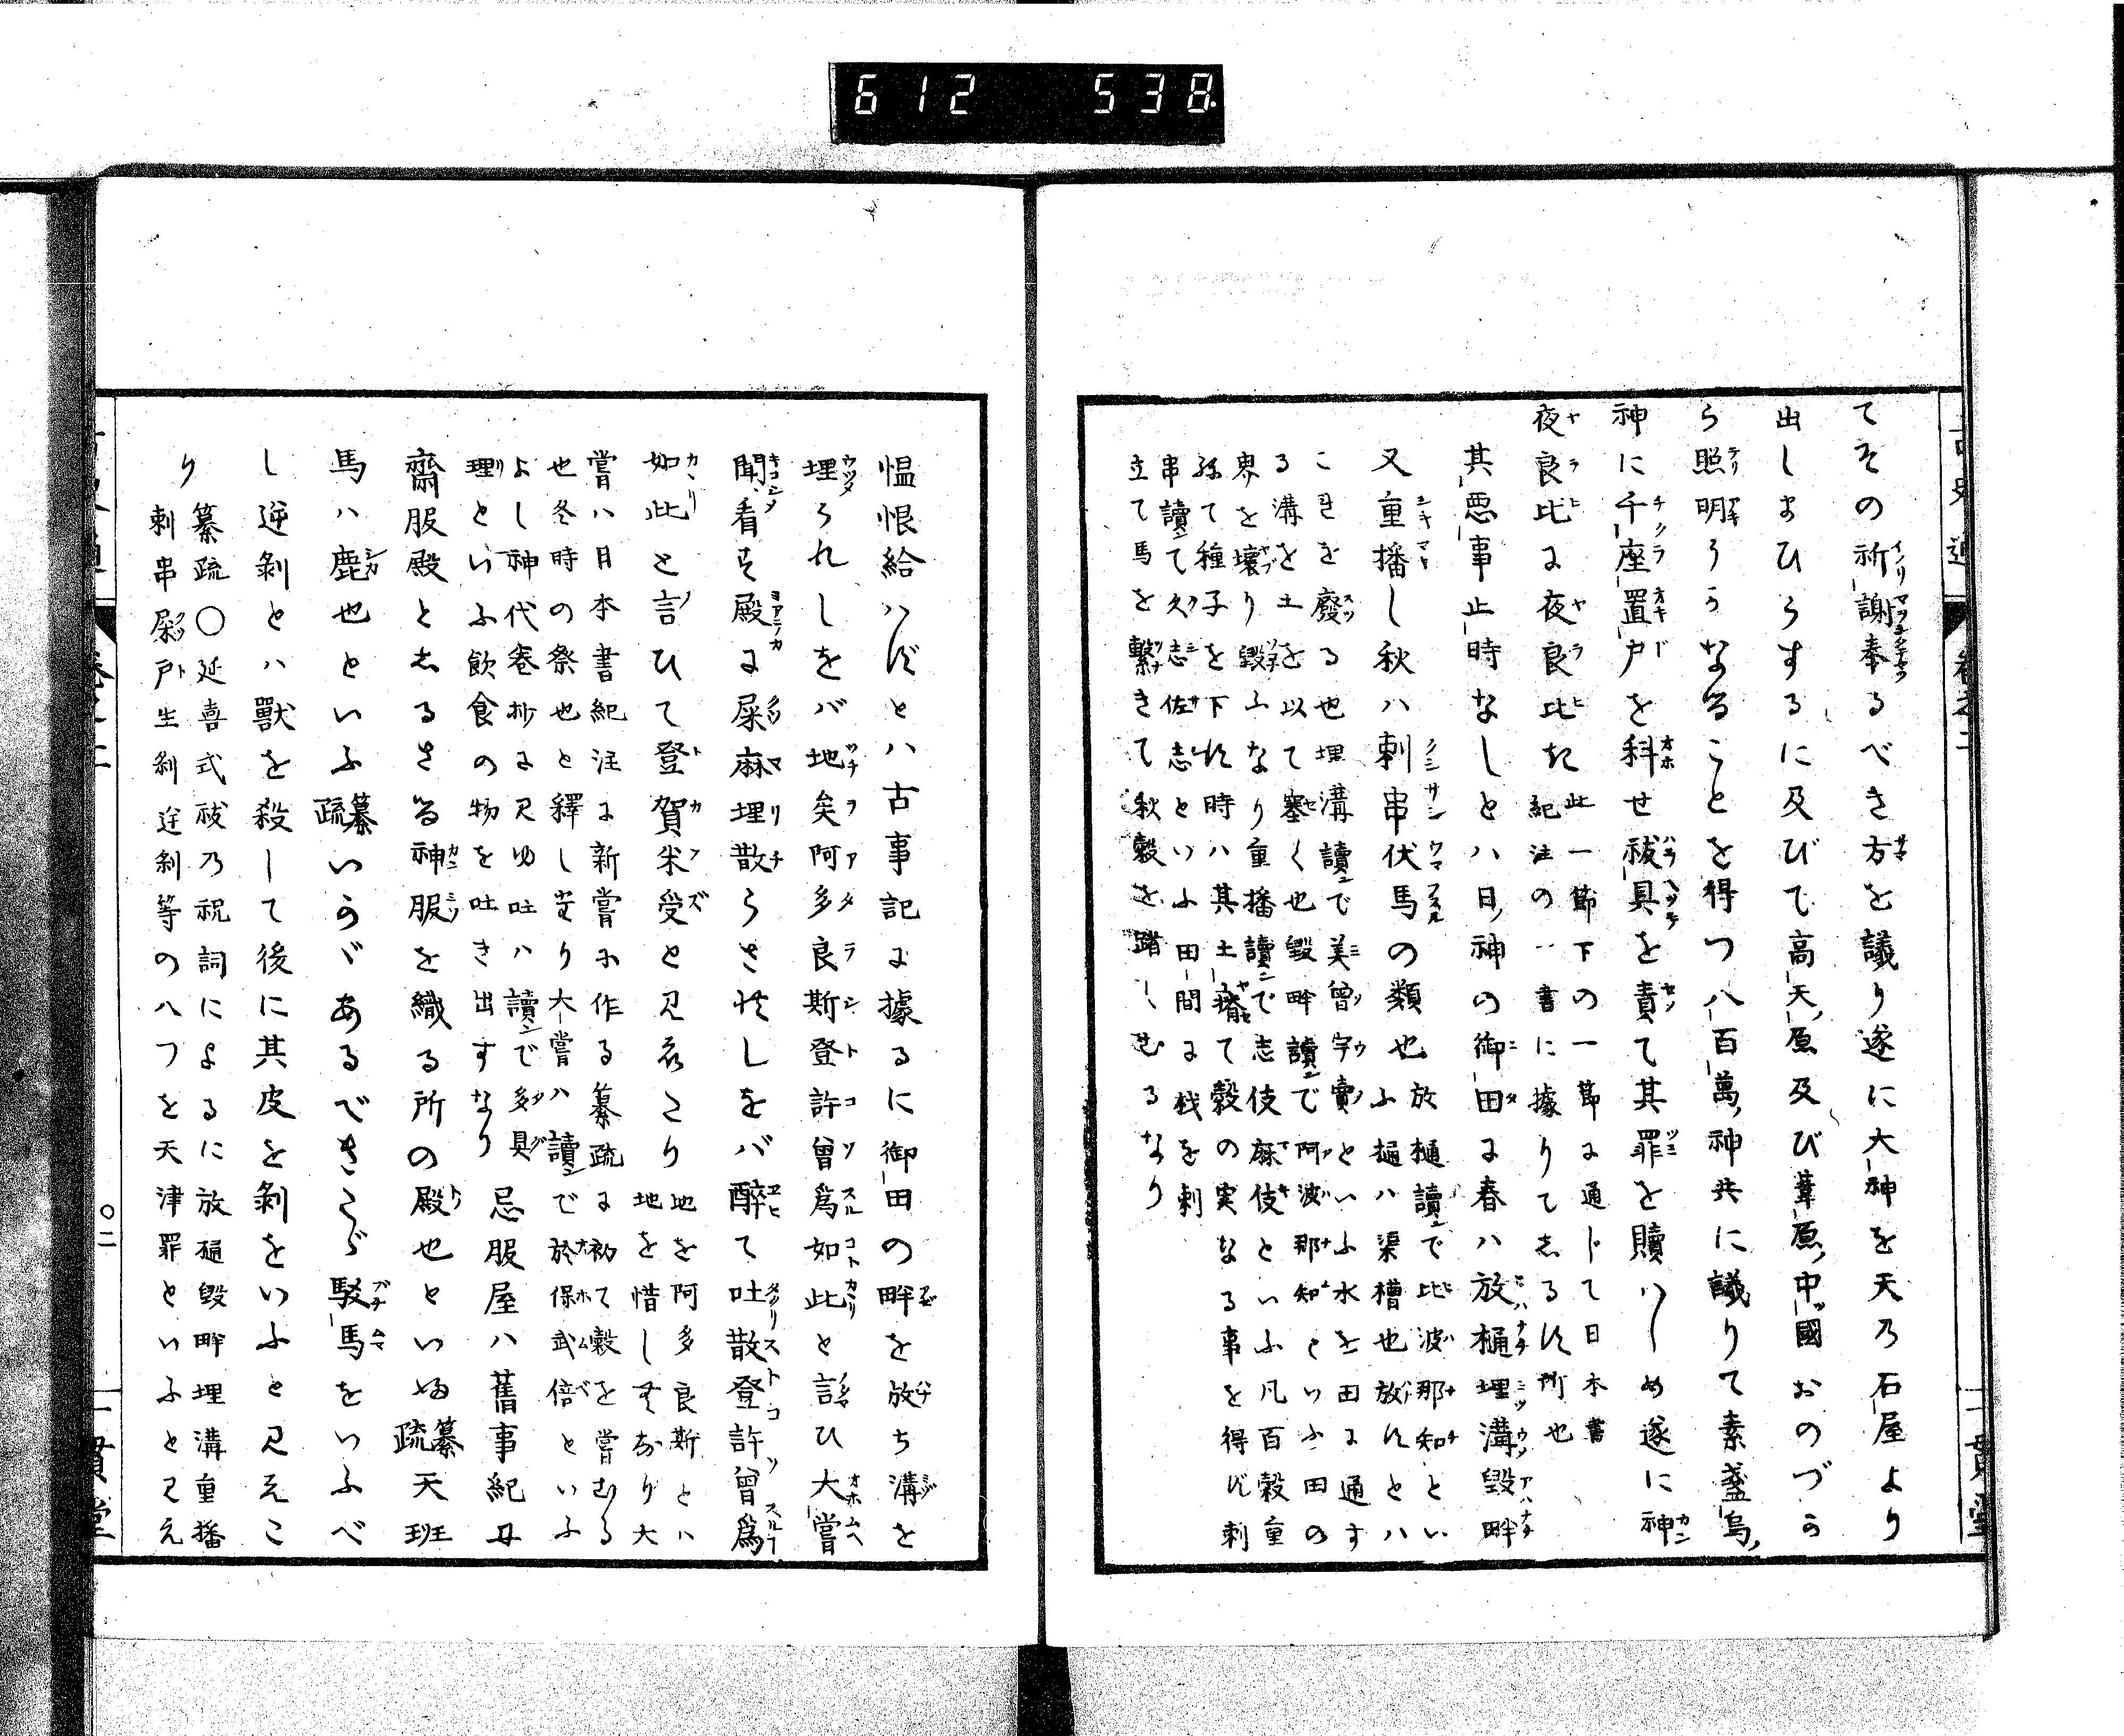 612 538
てその祈謝奉るべき方を議り遂に大神を天乃石屋より
出しまひらするに及びて高天原及び葦原中國おのづか
ら照明らかなることを得つ八百萬神共に議りて素盞烏
神に千座置戸を科せ祓具を責て其罪を贖ハしめ遂に神
夜良比に夜良比き
此一節下の一節に通じて日本書
紀注の一書に據りてしるす所也
其悪事止時なしとハ日神の御田に春ハ放樋埋溝毀畔
又重播し秋ハ刺串伏馬の類也
放樋讀で比波那知とい
ふ樋ハ渠槽也放すとハ
こきを廢る也埋溝讀で美曾宇賣といふ水を田に通す
る溝を土を以て塞く也毀畔讀で阿波那知といふ田の
界を壞り毀ふなり重播讀で志伎麻伎といふ凡百穀重
て種子を下す時ハ其土瘠て穀の実なる事を得ず刺
串讀て久志佐志といふ田間に杙を刺
立て馬を繋きて秋穀を踏しむるなり
慍恨給ハずとハ古事記に據るに御田の畔を放ち溝を
埋られしをバ地矣阿多良斯登許曾為如此と詔ひ大嘗
聞看す殿に屎麻理散らされしをバ醉て吐散登許曾為
如此と言ひて登賀米受と見えたり
地を阿多良斯とハ
地を惜しむなり大
嘗ハ日本書紀注に新嘗に作る纂疏に初て穀を嘗むる
也冬時の祭也と釋し里り大嘗ハ讀で於保武倍といふ
よし神代巻抄に見ゆ吐ハ讀で多具
理といふ飲食の物を吐き出すなり
忌服屋ハ舊事紀に
齋服殿としるさる神服を織る所の殿也といへ
纂疏
天班
馬ハ鹿也といふ
纂疏
いかゞあるべきたゞ駁馬をいふべ
し逆剝とハ獸を殺して後に其皮を剝をいふと見えた
り
纂疏〇延喜式祓乃祝詞によるに放樋毀畔埋溝重播
刺串屎戸生剝逆剝等の八つを天津罪といふと見え
〇二
一貫堂